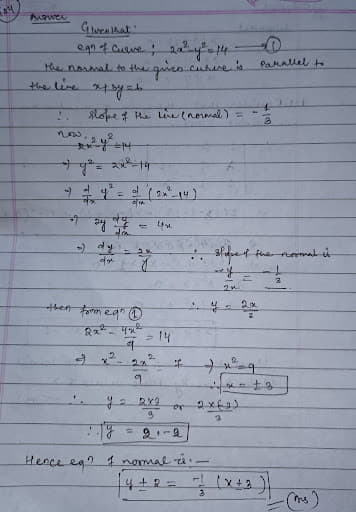 Answer
Given that:
eqn of curve; 2x²-y²=14 → ①
the normal to the given curve is parallel to
the line x+3y=6
∴ slope of the line (normal) = -1/3
now,
2x²-y²=14
⇒ y² = 2x²-14
⇒ d/dx y² = d/dx (2x²-14)
⇒ 2y dy/dx = 4x
⇒ dy/dx = 2x/y ∴ slope of the normal is
-y/2x = -1/3
then from eqn ① ∴ y = 2x/3
2x² - 4x²/9 = 14
⇒ x² - 2x²/9 = 7 ⇒ x² = 9
∴ x = ±3
∴ y = 2×3/3 or 2×(-3)/3
∴ y = 2, -2
Hence eqn of normal is:—
y ± 2 = -1/3 (x ± 3)
(Ans)